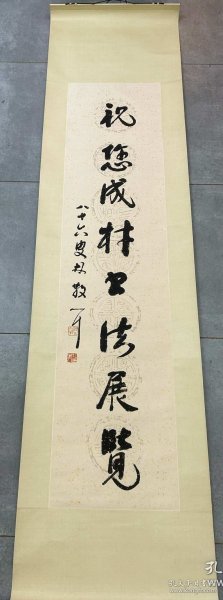 祝您成林书法展覽
八十六叟林散耳